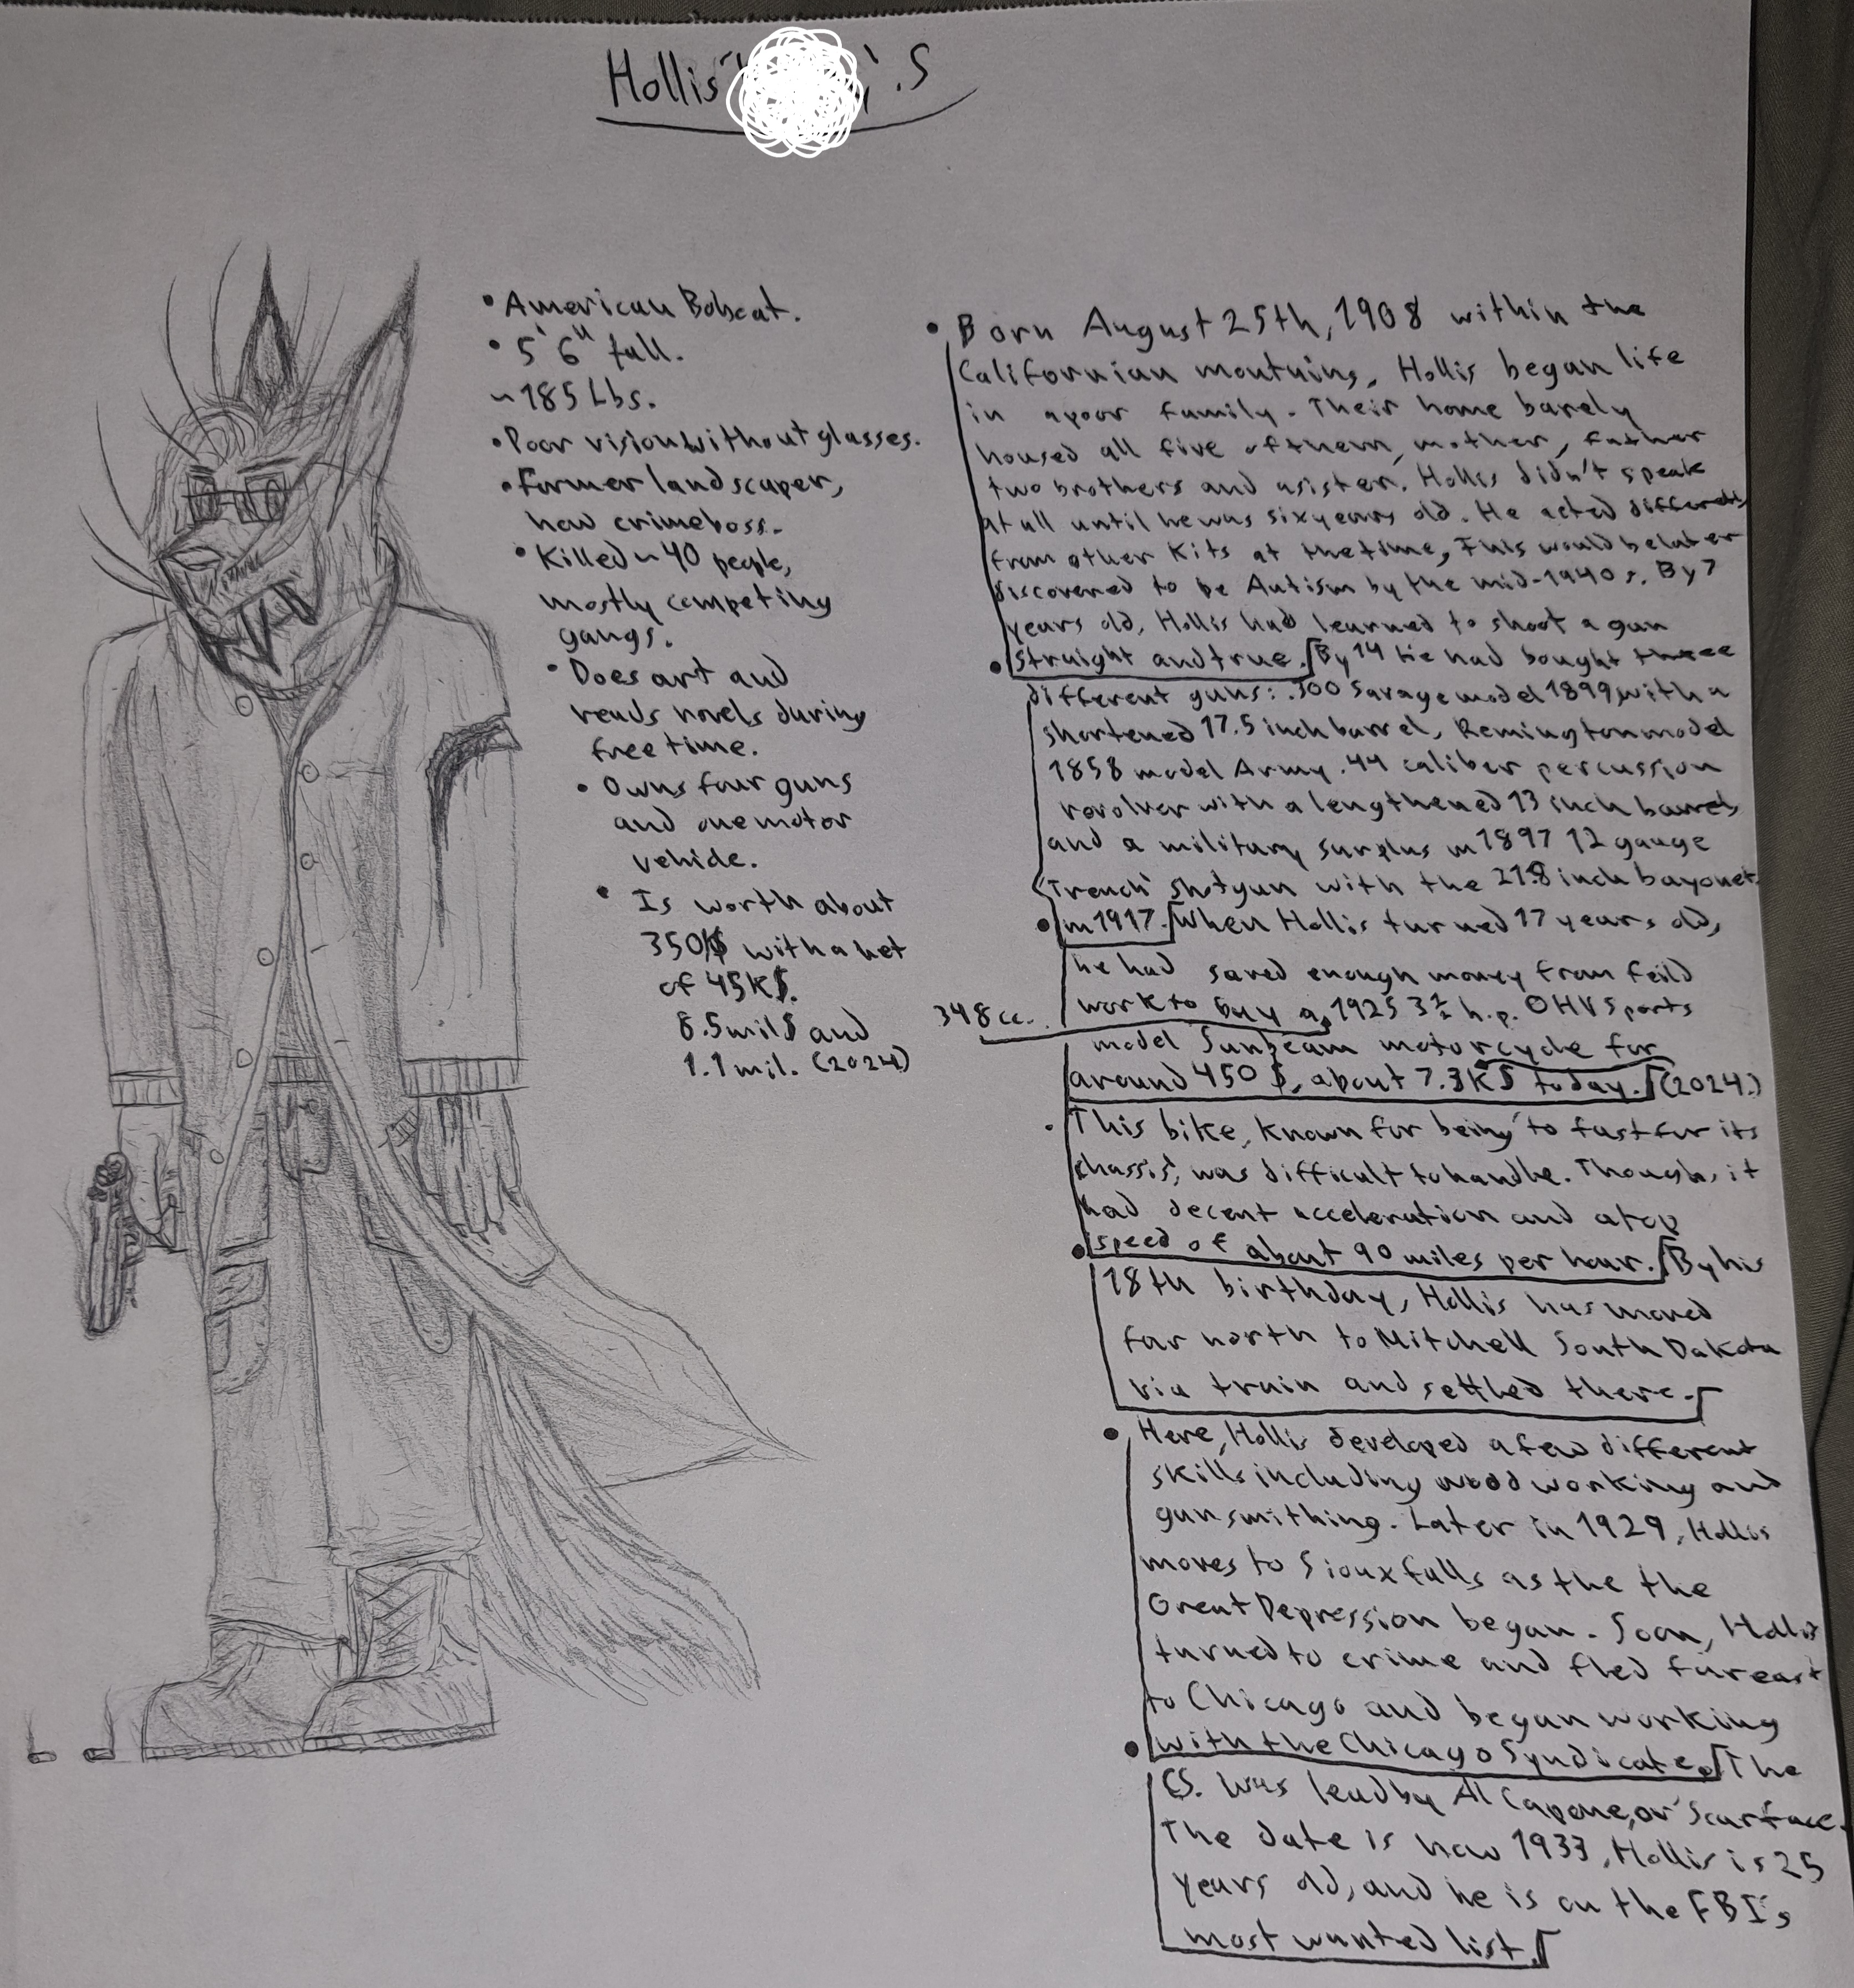 Hollis .S
• American Bobcat.
• 5'6" tall.
~185 Lbs.
• Poor vision without glasses.
• Former landscaper,
now crime boss.
• Killed ~40 people,
mostly competing
gangs.
• Does art and
reads novels during
free time.
• Owns four guns
and one motor
vehicle.
• Is worth about
350K$ with a net
of 45K$.
8.5mil$ and
1.1 mil. (2024)
• Born August 25th, 1908 within the
Californian mountains, Hollis began life
in a poor family. Their home barely
housed all five of them, mother, father
two brothers and a sister. Hollis didn't speak
at all until he was six years old. He acted different
from other kits at the time, This would be later
discovered to be Autism by the mid-1940s. By 7
years old, Hollis had learned to shoot a gun
straight and true. By 14 he had bought three
different guns: .300 Savage model 1899 with a
shortened 17.5 inch barrel, Remington model
1858 model Army .44 caliber percussion
revolver with a lengthened 13 inch barrel
and a military surplus m1897 12 gauge
'Trench' shotgun with the 21.8 inch bayonet
• m1917. When Hollis turned 17 years old,
he had saved enough money from feild
work to buy a 1925 3½ h.p. OHV Sports
348cc.
model Sunbeam motorcycle for
around 450$, about 7.3K$ today. (2024.)
• This bike, known for being "to fast for its
chassis", was difficult to handle. Though, it
had decent acceleration and a top
speed of about 90 miles per hour. By his
18th birthday, Hollis has moved
far north to Mitchell South Dakota
via train and settled there.
• Here, Hollis developed a few different
skills including woodworking and
gunsmithing. Later in 1929, Hollis
moves to Sioux falls as the the
Great Depression began. Soon, Hollis
turned to crime and fled far east
to Chicago and began working
with the Chicago Syndicate. The
CS. was lead by Al Capone, or 'Scarface.
The date is now 1933, Hollis is 25
years old, and he is on the FBI's
most wanted list.